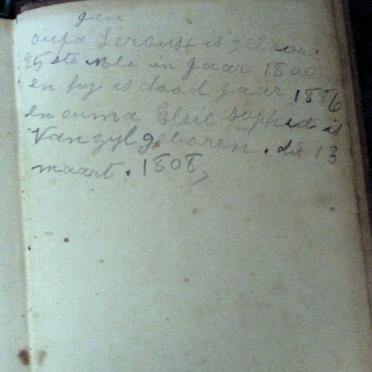 gen
oupa is gebore
25 ste in jaar 1800
en hy is dood jaar 1886
en ouma Elsie Sophia is
Van zyl geboren. die 13
maart. 1808,